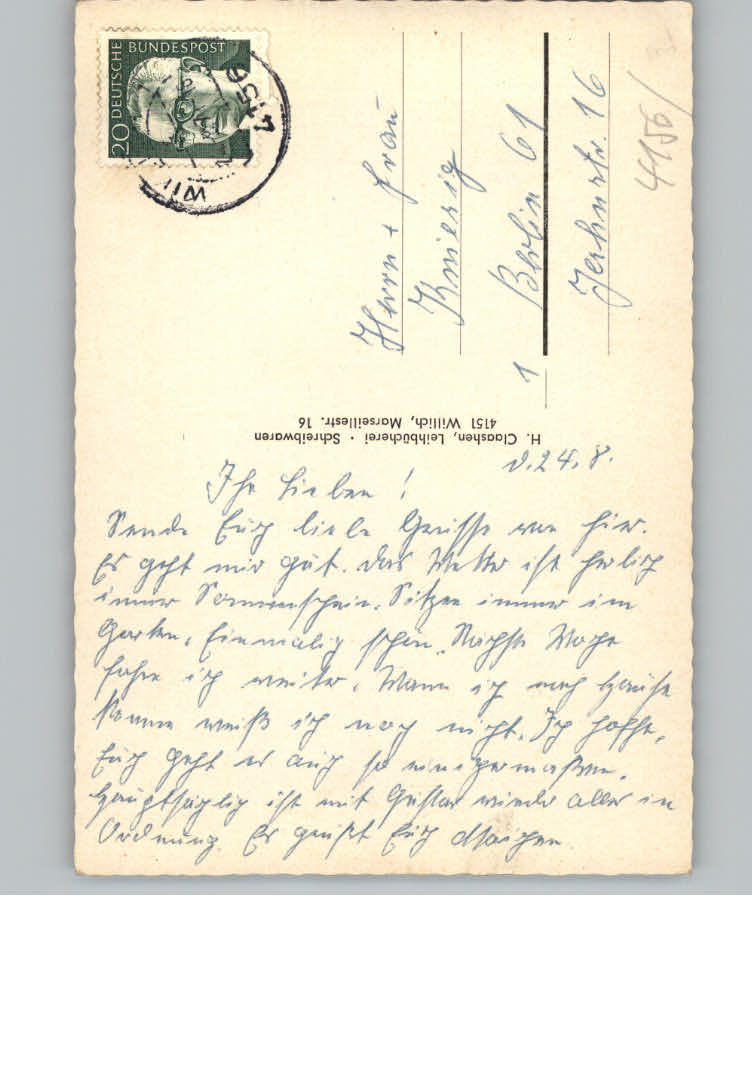 20 DEUTSCHE BUNDESPOST
4156
WILL
Herrn + Frau
Knierig
1 Berlin 61
Jahnstr. 16
4156/
H. Claashen, Leihbücherei · Schreibwaren
4151 Willich, Marseillestr. 16
d. 24. 8.
Ihr Lieben!
Sende Euch liebe Grüsse von hier.
Es geht mir gut. Das Wetter ist herlich
immer Sonnenschein. Sitzen immer im
Garten. Einmalig schön. Nächste Woche
fahre ich weiter. Wann ich nach Hause
komme weiß ich noch nicht. Ich hoffe,
Euch geht es auch so einigermaßen.
Hauptsächlich ist mit Gustav wieder alles in
Ordnung. Es grüßt Euch